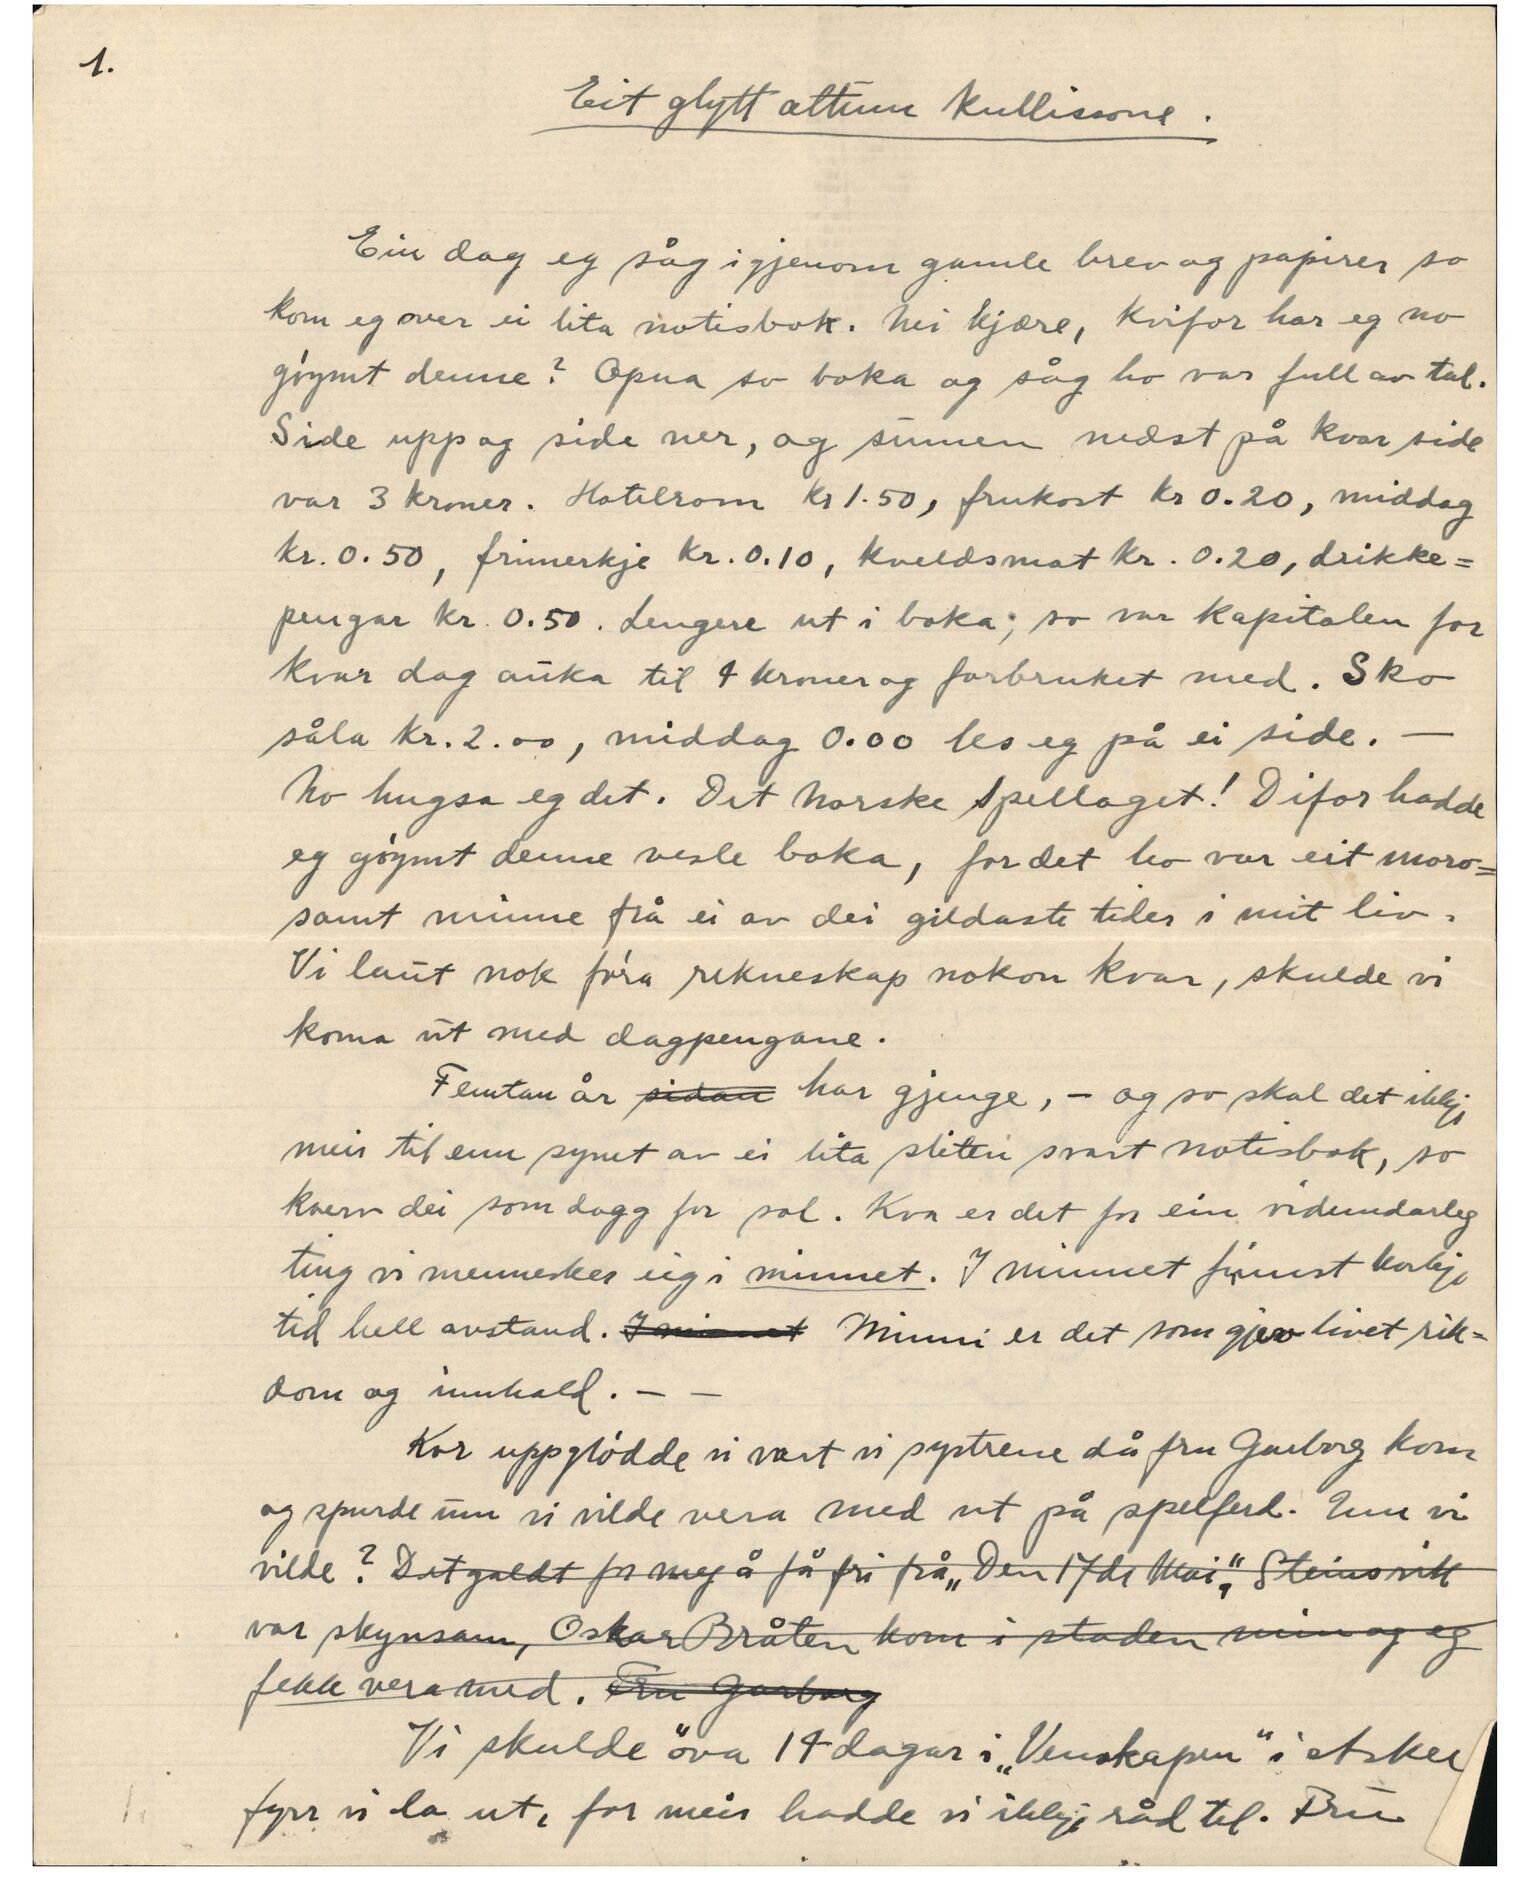 1.
Eit glytt attum kullissone.
Ein dag eg såg igjenom gamle brev og papirer so
kom eg over ei lita notisbok. Nei kjære, kvifor har eg no
gøymt denne? Opna so boka og såg ho var full av tal.
Side upp og side ner, og summen nedst på kvar side
var 3 kroner. Hotelrom kr 1.50, frukost kr 0.20, middag
kr. 0.50, frimerkje kr. 0.10, kveldsmat kr. 0.20, drikke=
pengar kr. 0.50. Lengere ut i boka; so var kapitalen for
kvar dag auka til 4 kroner og forbruket med. Sko
såla kr. 2.00, middag 0.00 les eg på ei side. —
No hugsa eg det. Det Norske Spellaget! Difor hadde
eg gøymt denne vesle boka, for det ho var eit moro=
samt minne frå ei av dei gildaste tider i mit liv.
Vi laut nok føra rekneskap nokon kvar, skulde vi
koma ut med dagpengane.
Femtan år sidan har gjenge, – og so skal det ikkje
meir til enn synet av ei lita sliten svart notisbok, so
kverv dei som dogg for sol. Kva er det for ein vidundarleg
ting vi mennesker eig i minnet. I minnet finnst korkje
tid hell avstand. I minnet Minni er det som gjev livet rik=
dom og innhald. — —
Kor uppglødde vi vart vi systrene då fru Garborg kom
og spurde um vi vilde vera med ut på spelferd. Um vi
vilde? Det galdt for meg å få fri frå „Den 17de Mai“. Steinsvik
var skynsam, Oskar Bråten kom i staden min og eg
fekk vera med. Fru Garborg
Vi skulde öva 14 dagar i „Venskapen“ i Asker
fyrr vi la ut, for meir hadde vi ikkje råd til. Fru